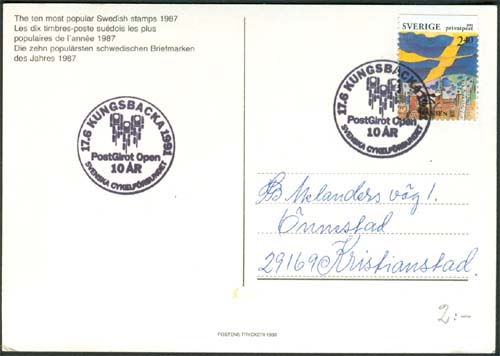 The ten most popular Swedish stamps 1987
Les dix timbres-poste suédois les plus
populaires de l'année 1987
Die zehn populärsten schwedischen Briefmarken
des Jahres 1987
SVERIGE
privatpost
2.40
17.6 KUNGSBACKA 1991
PostGirot Open
10 ÅR
SVENSKA CYKELFÖRBUNDET
17.6 KUNGSBACKA
PostGirot Open
10 ÅR
SVENSKA CYKELFÖRBUNDET
Melanders väg 1.
Önnestad
29169 Kristianstad.
2:-
POSTENS TRYCKERI 1988